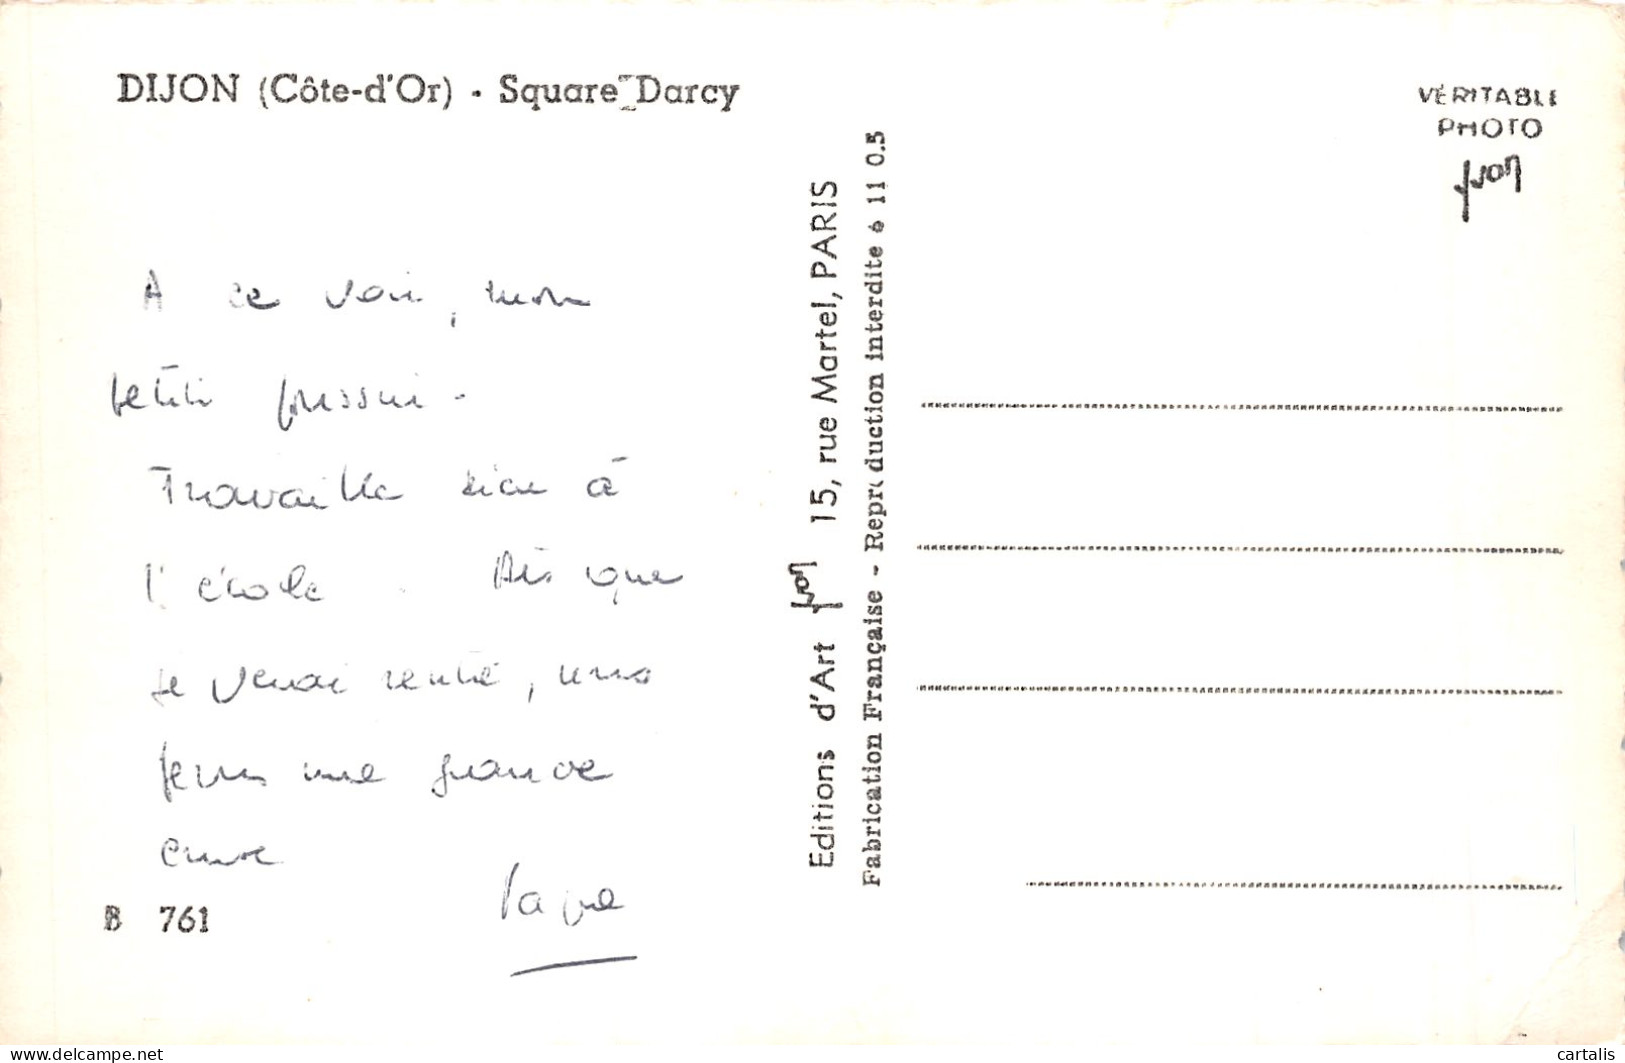 DIJON (Côte-d'Or) - Square Darcy
A ce soir, mon
petit poussin.
Travaille bien à
l'école. Dès que
je serai rentré, nous
ferons une grande
Editions d'Art Yvon 15, rue Martel, PARIS
Fabrication Française - Reproduction interdite
B 761
VÉRITABLE
PHOTO
Yvon
delcampe.net
cartalis